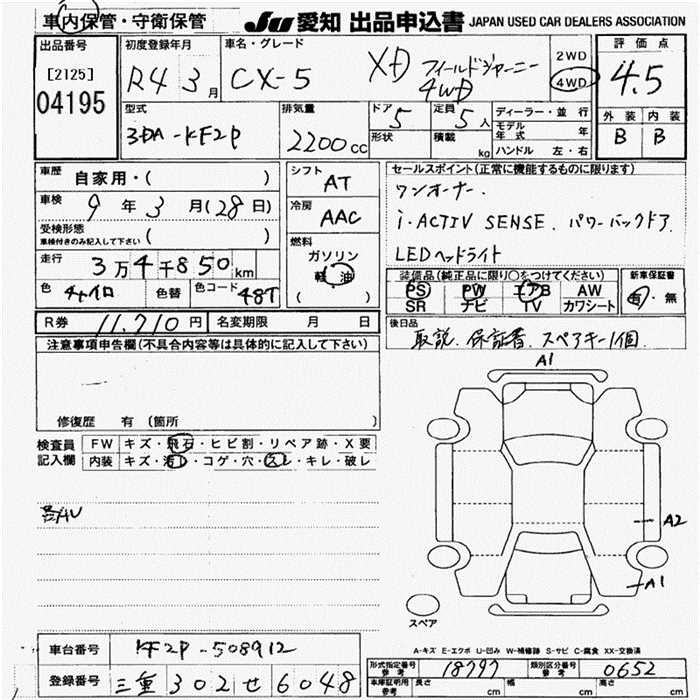 車内保管・守衛保管
JU 愛知 出品申込書 JAPAN USED CAR DEALERS ASSOCIATION
出品番号
[2125]
04195
初度登録年月
R4 3月
車名・グレード
CX-5 XD フィールドジャーニー
4WD
2WD
4WD
評価点
4.5
外装 内装
B B
型式
3DA-KF2P
排気量
2200cc
ドア
5
形状
定員
5人
積載
kg
ディーラー・並行
モデル年式 年
ハンドル 左・右
車歴 自家用・( )
車検 9年3月(28日)
受検形態
車検付きのみ記入して下さい ( )
走行 3万4千850km
色 チャイロ 色替 色コード 48T
シフト
AT
冷房
AAC
燃料
ガソリン
軽油
( )
セールスポイント(正常に機能するものに限ります)
ワンオーナー.
i.ACTIV SENSE. パワーバックドア
LEDヘッドライト
装備品(純正品に限り○をつけてください)
PS PW エアB AW
SR ナビ TV カワシート
新車保証書
有・無
R券 11.710円 名変期限 月 日
後日品
取説. 保証書. スペアキー1個.
注意事項申告欄(不具合内容等は具体的に記入して下さい)
修復歴 有 (箇所 )
検査員
記入欄
FW キズ・飛石・ヒビ割・リペア跡・X要
内装 キズ・汚レ・コゲ・穴・スレ・キレ・破レ
A1
A2
A1
スペア
A-キズ E-エクボ U-凹み W-補修跡 S-サビ C-腐食 XX-交換済
車台番号 KF2P-508912
登録番号 三重 302 せ 6048
形式指定番号
参考 18797
類別区分番号
参考 0652
車庫証明用
参考
長さ cm 幅 cm 高さ cm